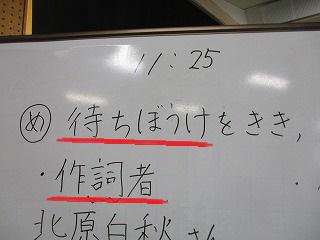 11:25
め 待ちぼうけをきき,
・作詞者
北原白秋さん